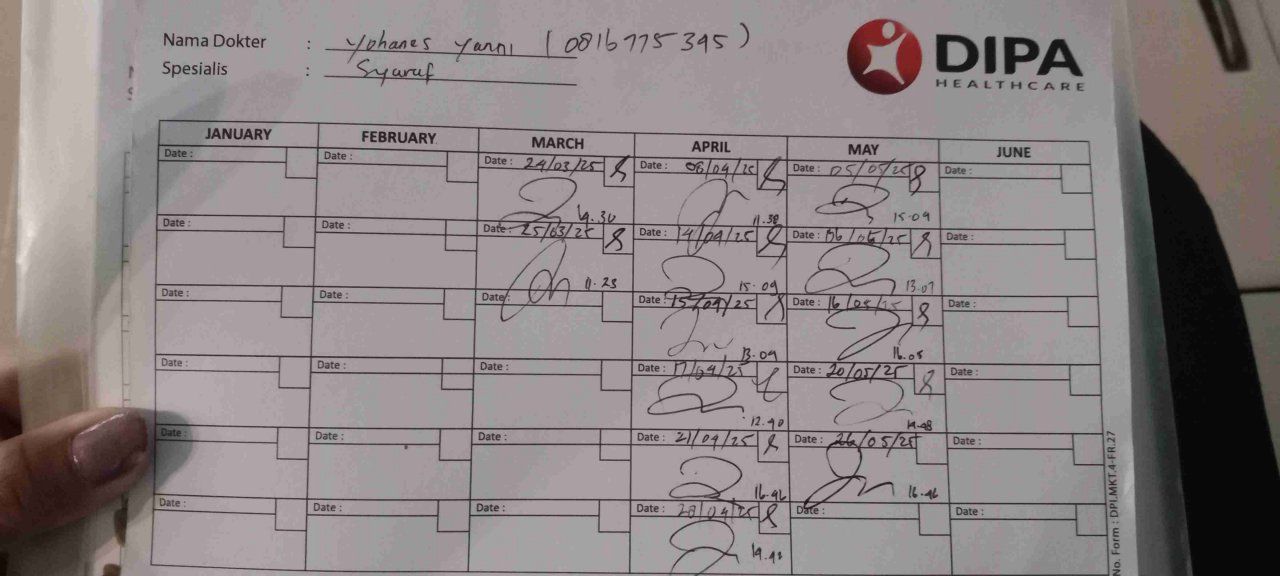 Nama Dokter : Yohanes Yanni (0816775395)
Spesialis : Syaraf
DIPA
HEALTHCARE
JANUARY FEBRUARY MARCH APRIL MAY JUNE
Date : Date : Date : 24/03/25 Date : 08/04/25 Date : 05/05/25 Date :
14.30 11.38 15.09
Date : Date : Date : 25/03/25 Date : 14/04/25 Date : 06/05/25 Date :
11.23 15.09 13.07
Date : Date : Date : Date : 15/04/25 Date : 16/05/25 Date :
13.09 16.05
Date : Date : Date : Date : 17/04/25 Date : 20/05/25 Date :
12.40 14.48
Date : Date : Date : Date : 21/04/25 Date : 26/05/25 Date :
16.46 16.46
Date : Date : Date : Date : 28/04/25 Date : Date :
No. Form : DPI.MKT.4-FR.27